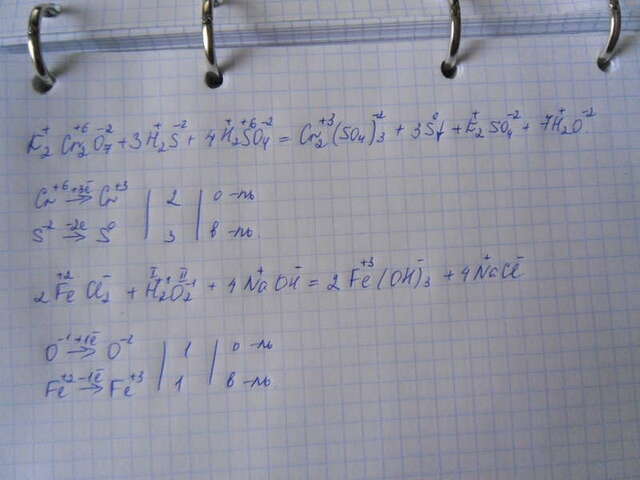 K₂⁺Cr₂⁺⁶O₇⁻² + 3H₂⁺S⁻² + 4H₂⁺S⁺⁶O₄⁻² = Cr₂⁺³(SO₄)₃⁻² + 3S⁰↓ + K₂⁺SO₄⁻² + 7H₂⁺O⁻²
Cr⁺⁶ +3ē → Cr⁺³ | 2 | о-ль
S⁻² -2ē → S⁰ | 3 | в-ль.
2Fe⁺²Cl₂⁻ + H₂⁺O₂⁻¹ + 4Na⁺OH⁻ = 2Fe⁺³(OH)₃⁻ + 4Na⁺Cl⁻
O⁻¹ +1ē → O⁻² | 1 | о-ль
Fe⁺² -1ē → Fe⁺³ | 1 | в-ль.